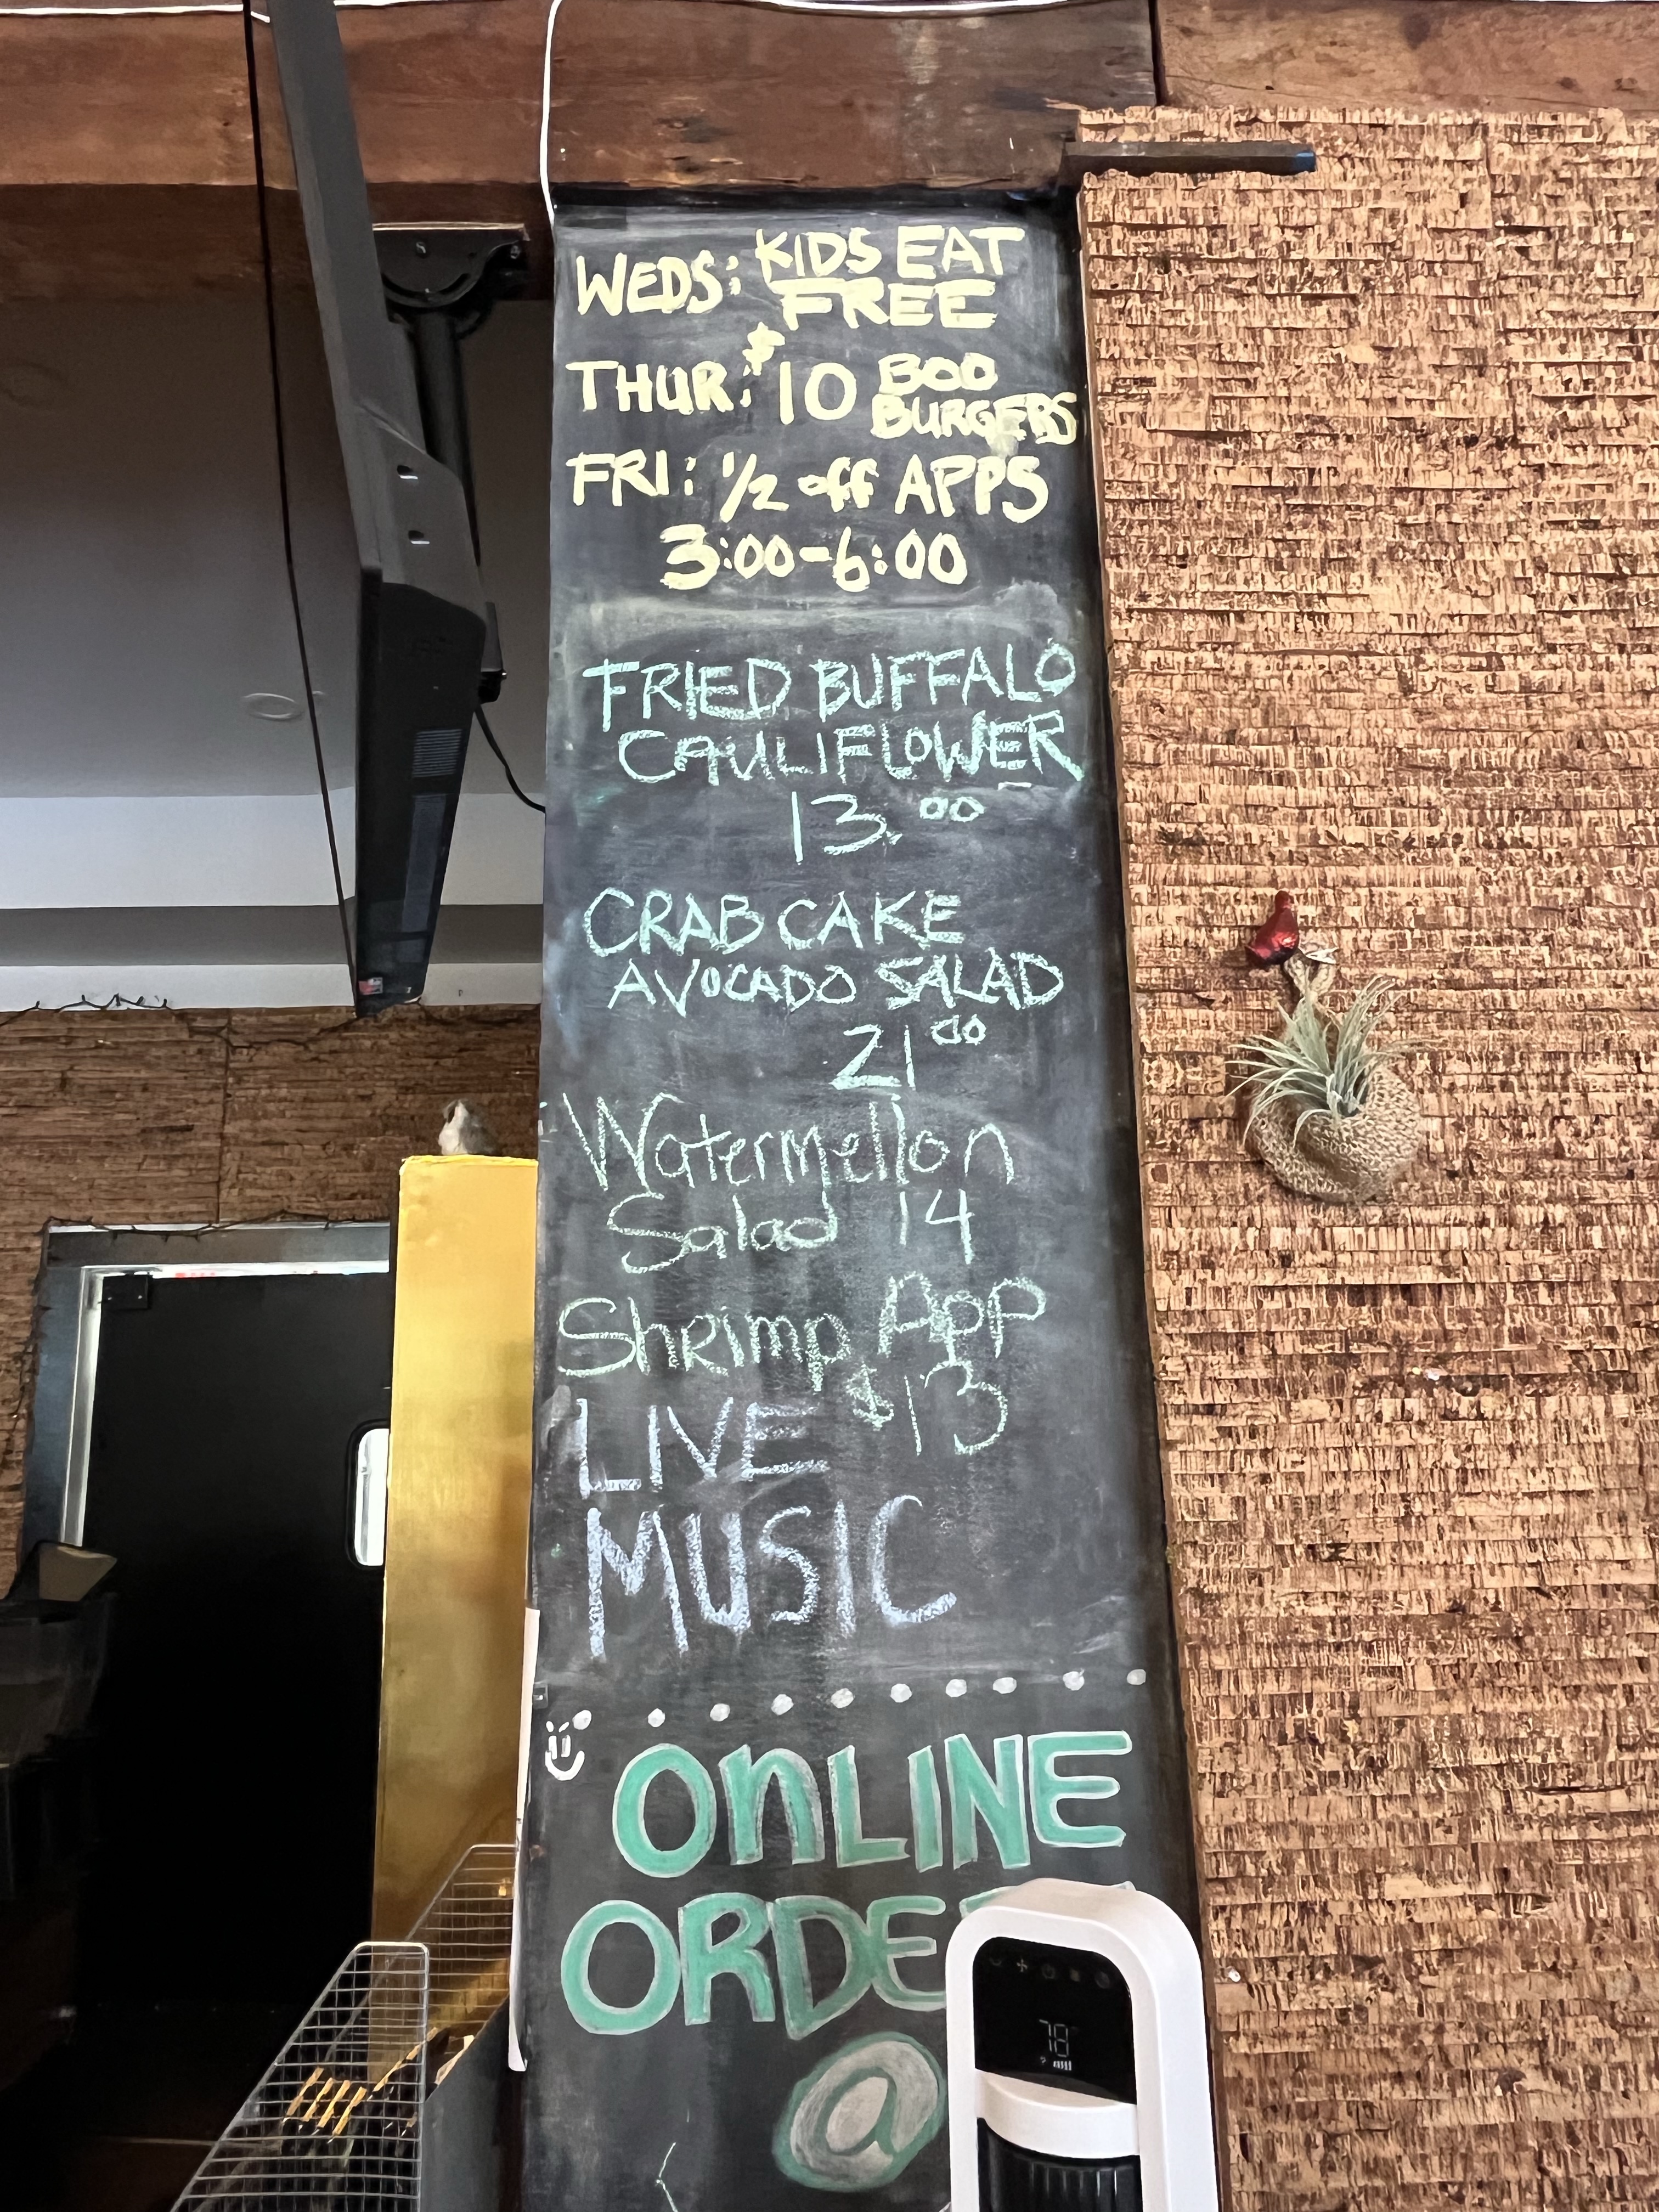 WEDS: KIDS EAT
FREE
THUR: $10 BOO
BURGERS
FRI: 1/2 off APPS
3:00-6:00
FRIED BUFFALO
CAULIFLOWER
13.00
CRAB CAKE
AVOCADO SALAD
21 00
Watermellon
Salad 14
Shrimp App
$13
LIVE
MUSIC
OnLINE
ORDE
@
78